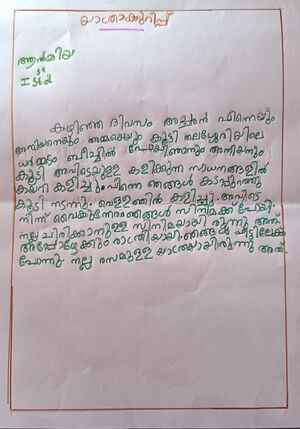 യാത്രാക്കുറിപ്പ്
ആൽമിയ
I Std
കഴിഞ്ഞ ദിവസം അച്ഛൻ എന്നെയും
അനിയനെയും അമ്മയെയും കൂട്ടി തലശ്ശേരിയിലെ
ധർമ്മടം ബീച്ചിൽ പോയി. ഞാനും അനിയനും
കൂടി അവിടെയുള്ള കളിക്കുന്ന സാധനങ്ങളിൽ
കയറി കളിച്ചു. പിന്നെ ഞങ്ങൾ കടപ്പുറത്തു
കൂടി നടന്നു. വെള്ളത്തിൽ കളിച്ചു. അവിടെ
നിന്ന് വൈകുന്നേരം ഞങ്ങൾ സിനിമക്ക് പോയി.
നല്ല ചിരിക്കാനുള്ള സിനിമയായി രുന്നു അത്.
അപ്പോഴേക്കും രാത്രിയായി. ഞങ്ങൾ വീട്ടിലേക്ക്
പോന്നു. നല്ല രസമുള്ള യാത്രയായിരുന്നു അത്.